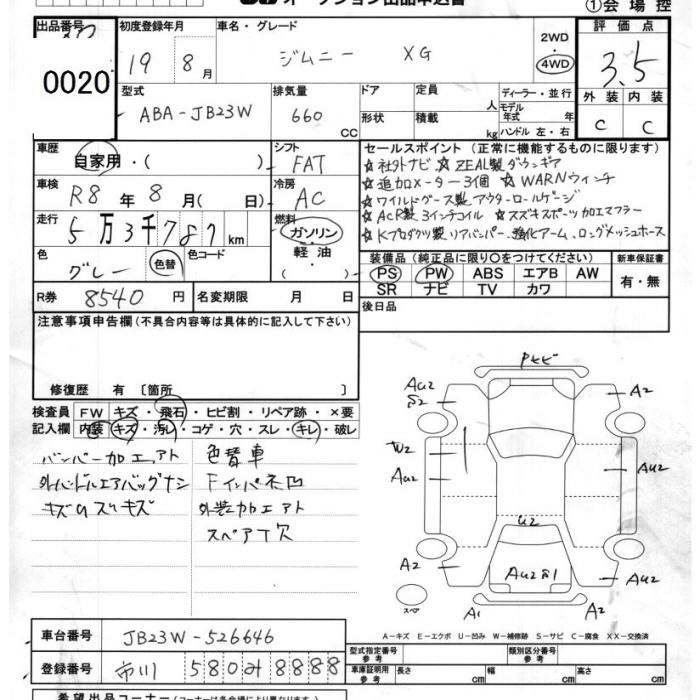 オークション出品申込書
①会場控
出品番号
0020
初度登録年月
19 8月
車名・グレード
ジムニー XG
2WD
4WD
評価点
3.5
外装 内装
C C
型式
ABA-JB23W
排気量
660 CC
ドア
形状
定員 人
積載 kg
ディーラー・並行
モデル年式 年式
ハンドル 左・右
車歴
自家用・( )
シフト
FAT
車検
R8年8月( 日)
冷房
AC
走行
5万3千787km
燃料
ガソリン
軽油
( )
色
グレー
色替
カラーコード
R券 8540円
名変期限 月 日
セールスポイント(正常に機能するものに限ります)
☆社外ナビ ☆ZEAL製ダウンギア
☆追加メーター3個 ☆WARNウィンチ
☆ワイルドグース製アウターロールゲージ
☆ACR製3インチコイル ☆スズキスポーツ加工マフラー
☆Kプロダクツ製リアバンパー、強化アーム、ロングメッシュホース
装備品(純正品に限り○をつけてください)
PS PW ABS エアB AW
SR ナビ TV カワ
新車保証書
有・無
後日品
注意事項申告欄(不具合内容等は具体的に記入して下さい)
修復歴 有〔箇所 〕
検査員記入欄
FW キズ・飛石・ヒビ割・リペア跡・×要
内装 キズ・汚レ・コゲ・穴・スレ・キレ・破レ
バンパー加工アト 色替車
外ハンドルエアバッグナシ Fインパネ凹
キズ 外装加工アト
スペアT穴
Pサビ
AU2
S2
A2
W2
AU2
AU2
U2
A2
AU2S1
AU2
スペア
A1
A2
A-キズ E-エクボ U-凹み W-補修跡 S-サビ C-腐食 XX-交換済
車台番号 JB23W-526646
登録番号 市川 580み8888
型式指定番号 参考
類別区分番号 参考
車庫証明用 参考 長さ cm 幅 cm 高さ cm
希望出品コーナー